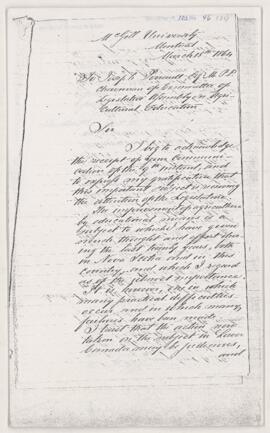 McGill University
Montreal
March 15th 1864
To Joseph Perrault Esq. M.P.P.
Chairman of Committee of
Legislative Assembly on Agri-
cultural Education
Sir
I beg to acknowledge
the receipt of your communi-
cation of the 9th instant, and
to express my gratification that
this important subject is receiving
the attention of the Legislature.
The improvement of agriculture
by educational means is a
subject to which I have given
much thought and effort during
the last twenty years, both
in Nova Scotia and in this
country, and which I regard
as of the utmost importance.
It is, however, one in which
many practical difficulties
occur, and in which many
failures have been made.
I trust that the action now
taken on the subject in Lower
Canada may be judicious,
and